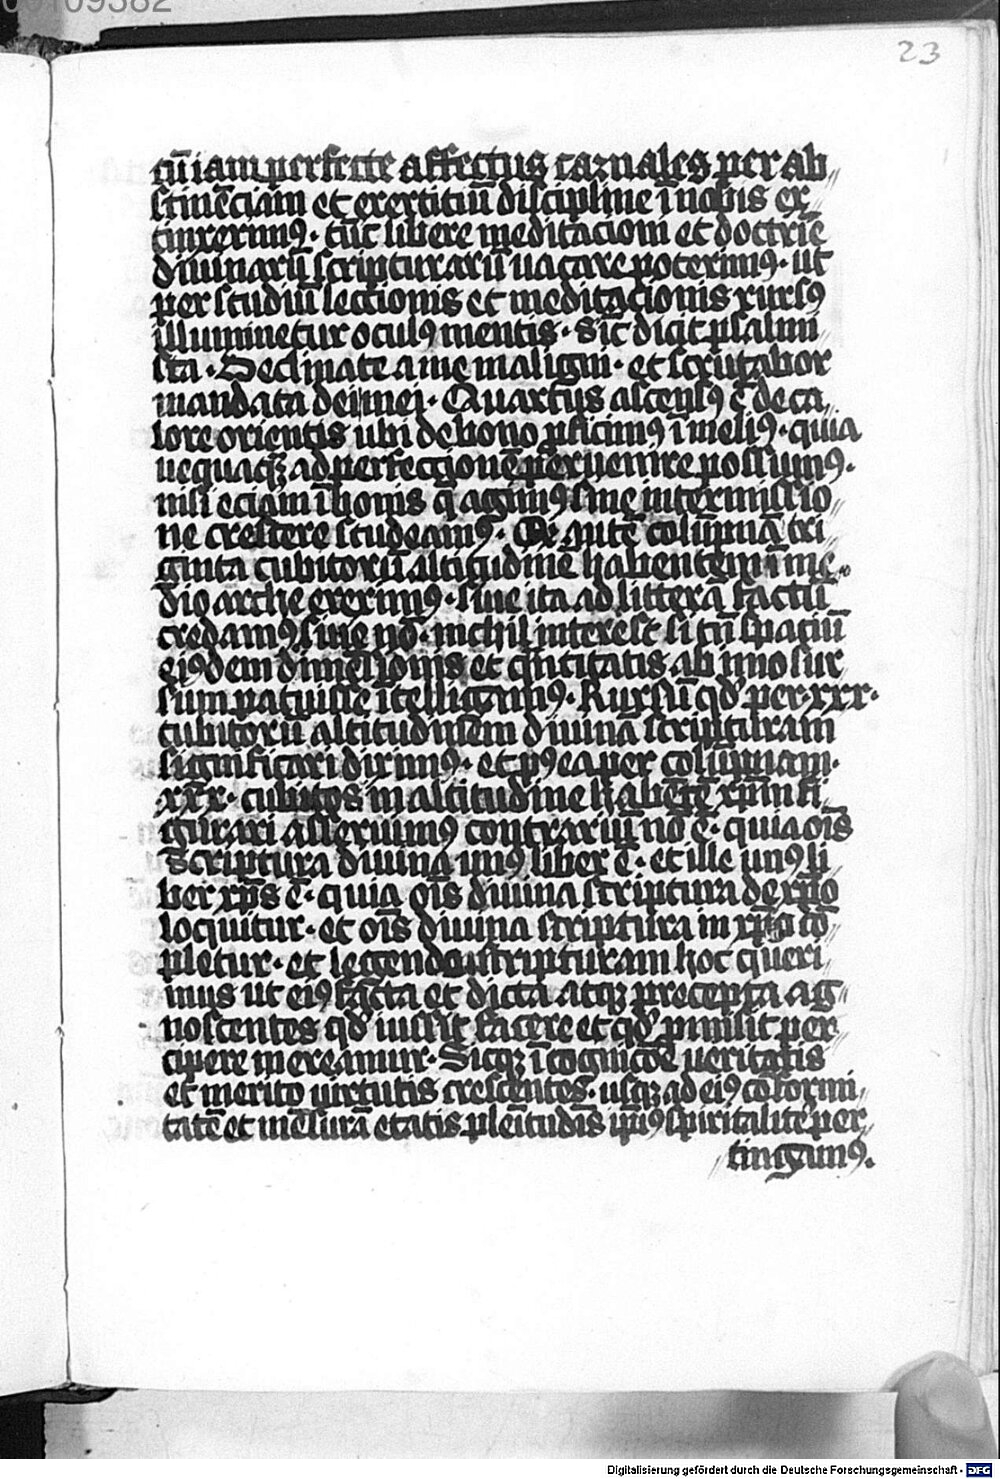 00109382
23
cū iam perfecte affectus carnales per ab
stinēciam et exercitiū discipline ī nobis ex
tinxerimꝰ · tūc libere meditacioni et doctrīe
diuinarū scripturarū uacare poterimꝰ · ut
per studiū lectionis et meditacionis rursꝰ
illuminetur oculꝰ mentis · Sīc dicit psalmi
sta · Declinate a me maligni · et scrutabor
mandata dei mei · Quartus ascensꝰ ē de ca
lore orientis ubi de bono ꝓficimꝰ ī meliꝰ · quia
nequaqȝ ad perfectionē peruenire possumꝰ ·
nisi eciam ī bonis q̄ agimꝰ sine intermissio
ne crescere studeamꝰ · columpnā tri
ginta cubitorū altitudinē habentem ī me
dio arche erexīmꝰ · siue ita ad litterā factū
credamꝰ siue nō · nichil interest si tn̄ spaciū
eiꝰdem dimēsionis et q̄ntitatis ab imo sur
sum patuisse ītelligamꝰ · Rursū qd̓ per · xxx ·
cubitorū altitudinem diuinā scripturam
significari diximꝰ · et pꝰea per colūpnam ·
xxx · cubitos in altitudine habētē xp̄m fi
gurari asseruimꝰ contrariū nō ē · quia oīs
Scriptura diuina unꝰ liber ē · et ille unꝰ li
ber xp̄s ē · quia oīs diuina scriptura de xp̄o
loquitur · et oīs diuina scriptura in xp̄o cō
pletur · et legendo scripturam hoc queri
mus ut eiꝰ facta et dicta atqȝ precepta ag
noscentes qd̓ iussit facere et qd̓ ꝓmisit per
cipere mereamur · Sicqȝ ī cognicōe ueritatis
et merito uirtutis crescentes · usqȝ ad eiꝰ cōformi
tatē et mēsurā etatis plēitudīs ip̄iꝰ spiritalitē per
tingamꝰ.
Digitalisierung gefördert durch die Deutsche Forschungsgemeinschaft - DFG